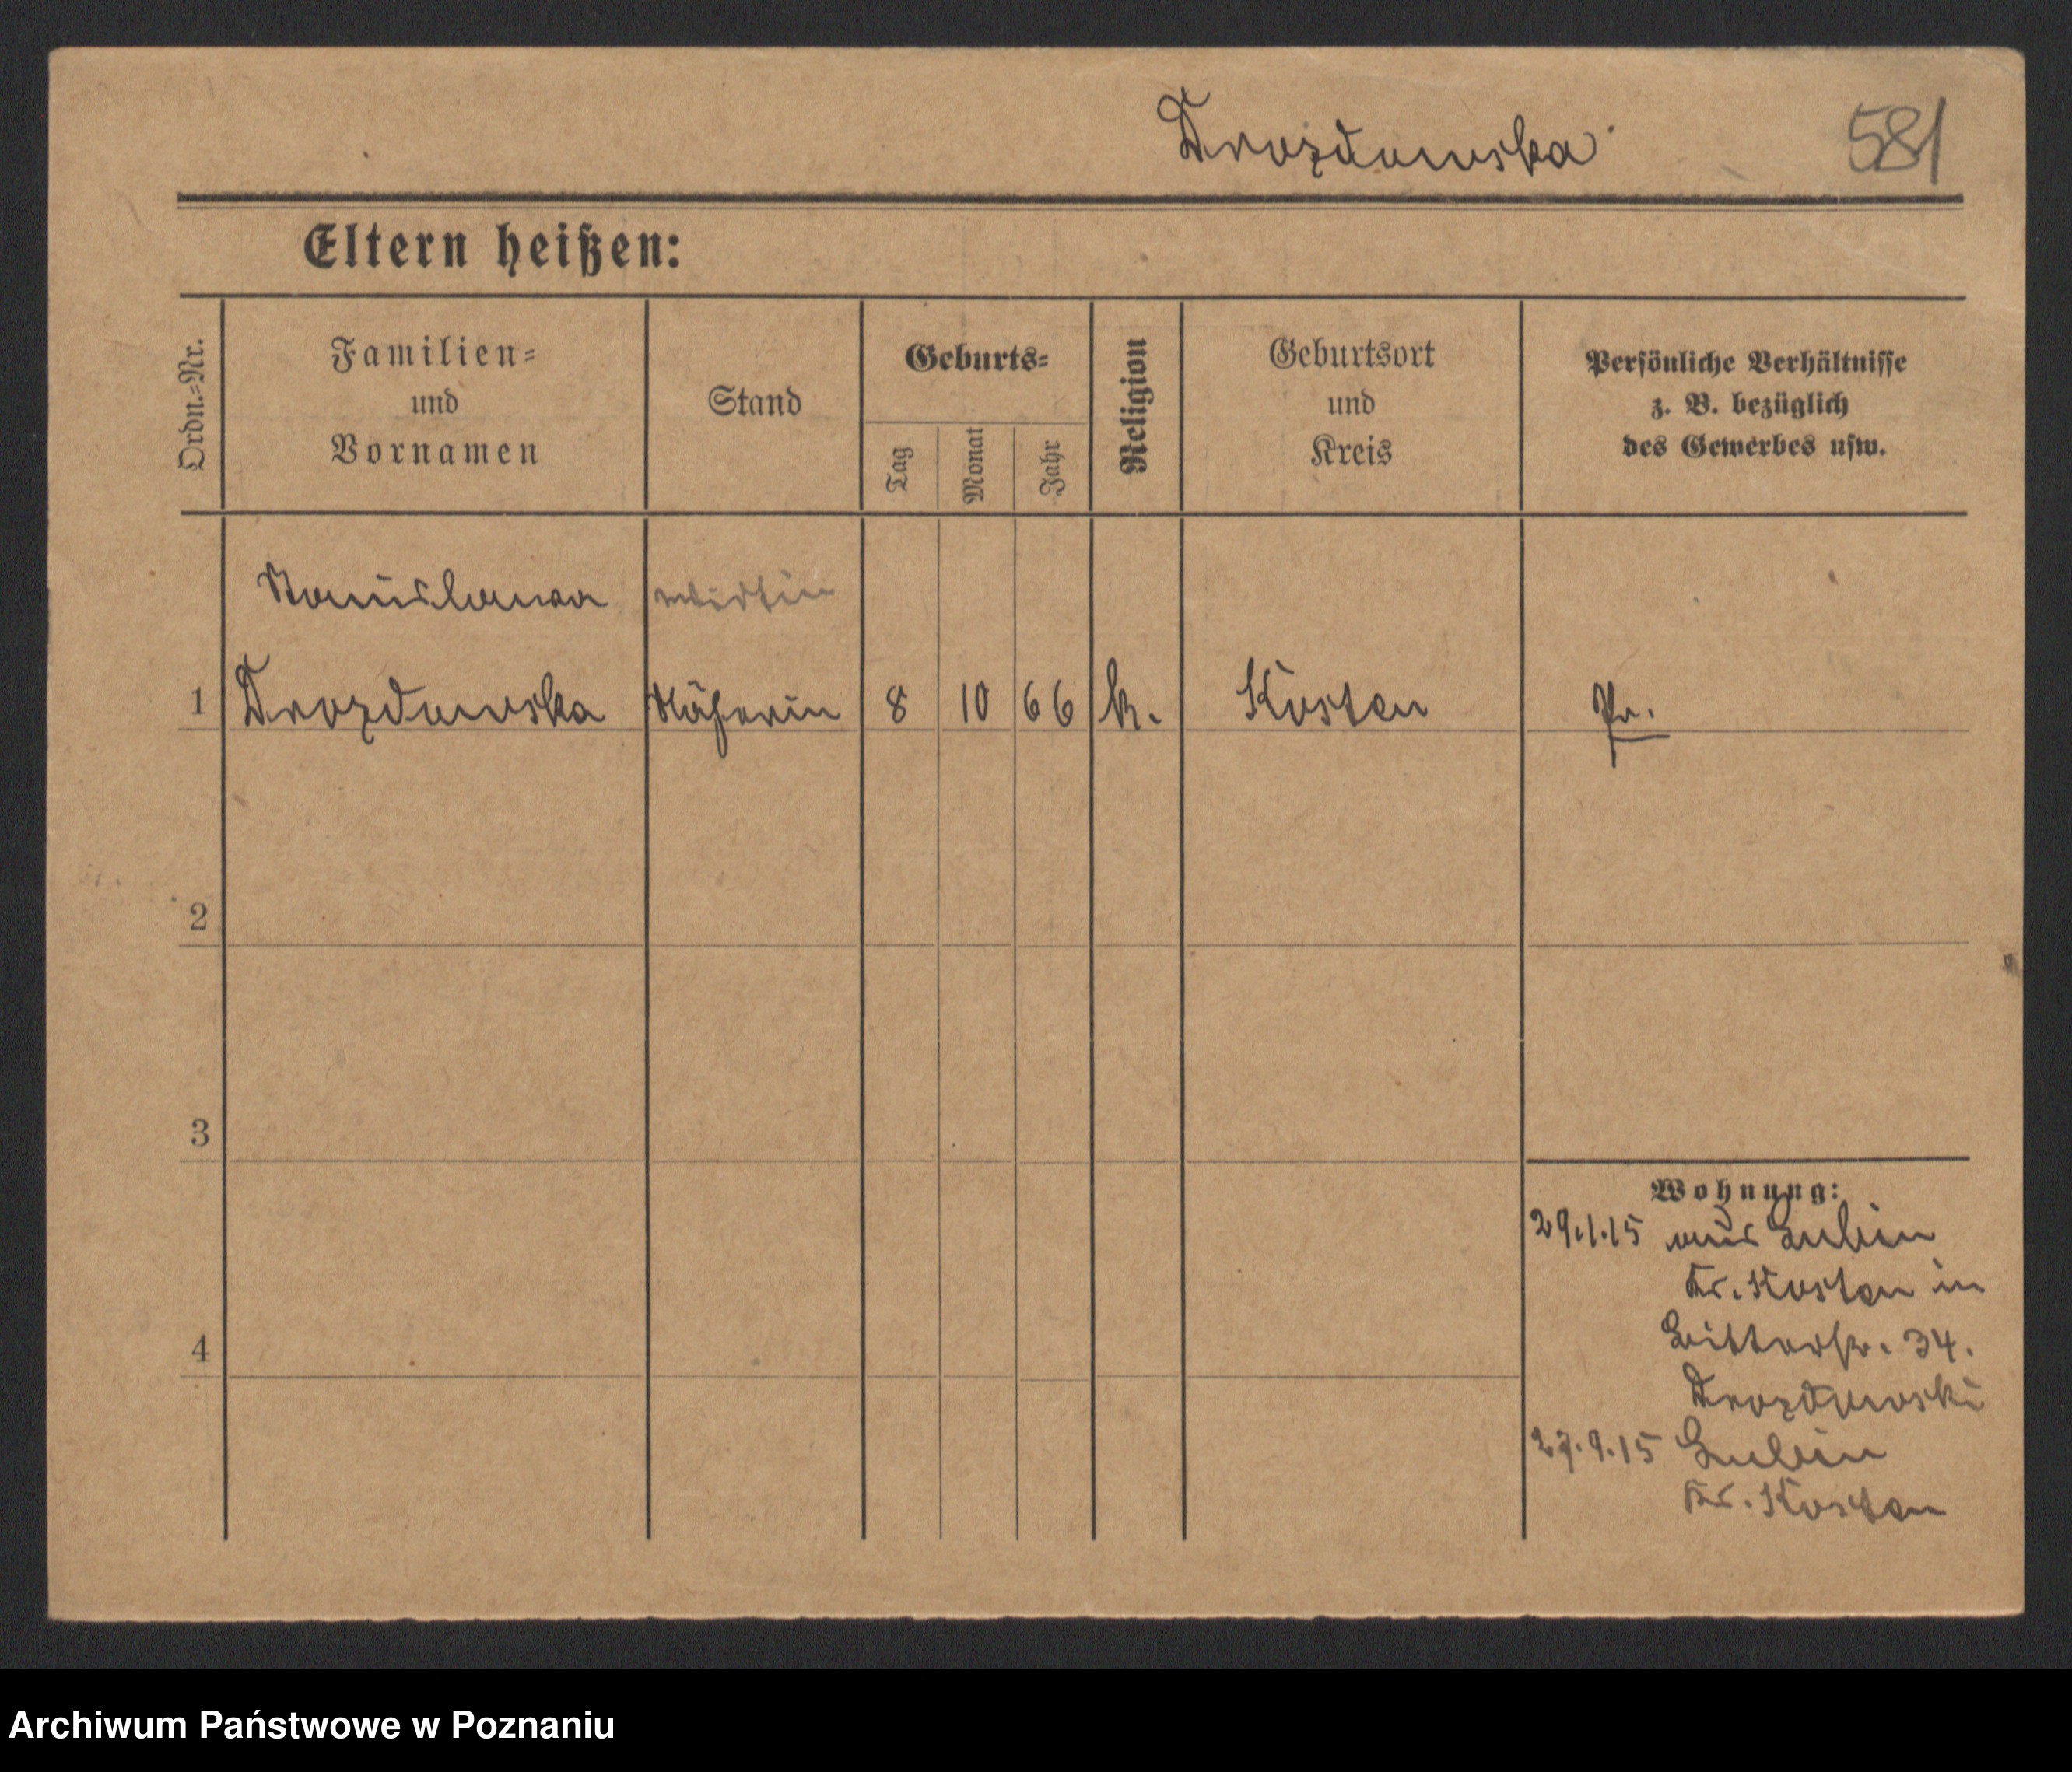 Drozdowska
581
Eltern heißen:
Ordn.=Nr.
Familien=
und
Vornamen
Stand
Geburts=
Tag
Monat
Jahr
Religion
Geburtsort
und
Kreis
Persönliche Verhältnisse
z. B. bezüglich
des Gewerbes usw.
Stanislawa
Wirtin
1 Drozdowska Näherin 8 10 66 k. Kosten Pr.
2
3
4
Wohnung:
29.1.15 aus Lubin
Kr. Kosten in
Bitterstr. 34.
Drozdowski
27.9.15 Lubin
Kr. Kosten
Archiwum Państwowe w Poznaniu